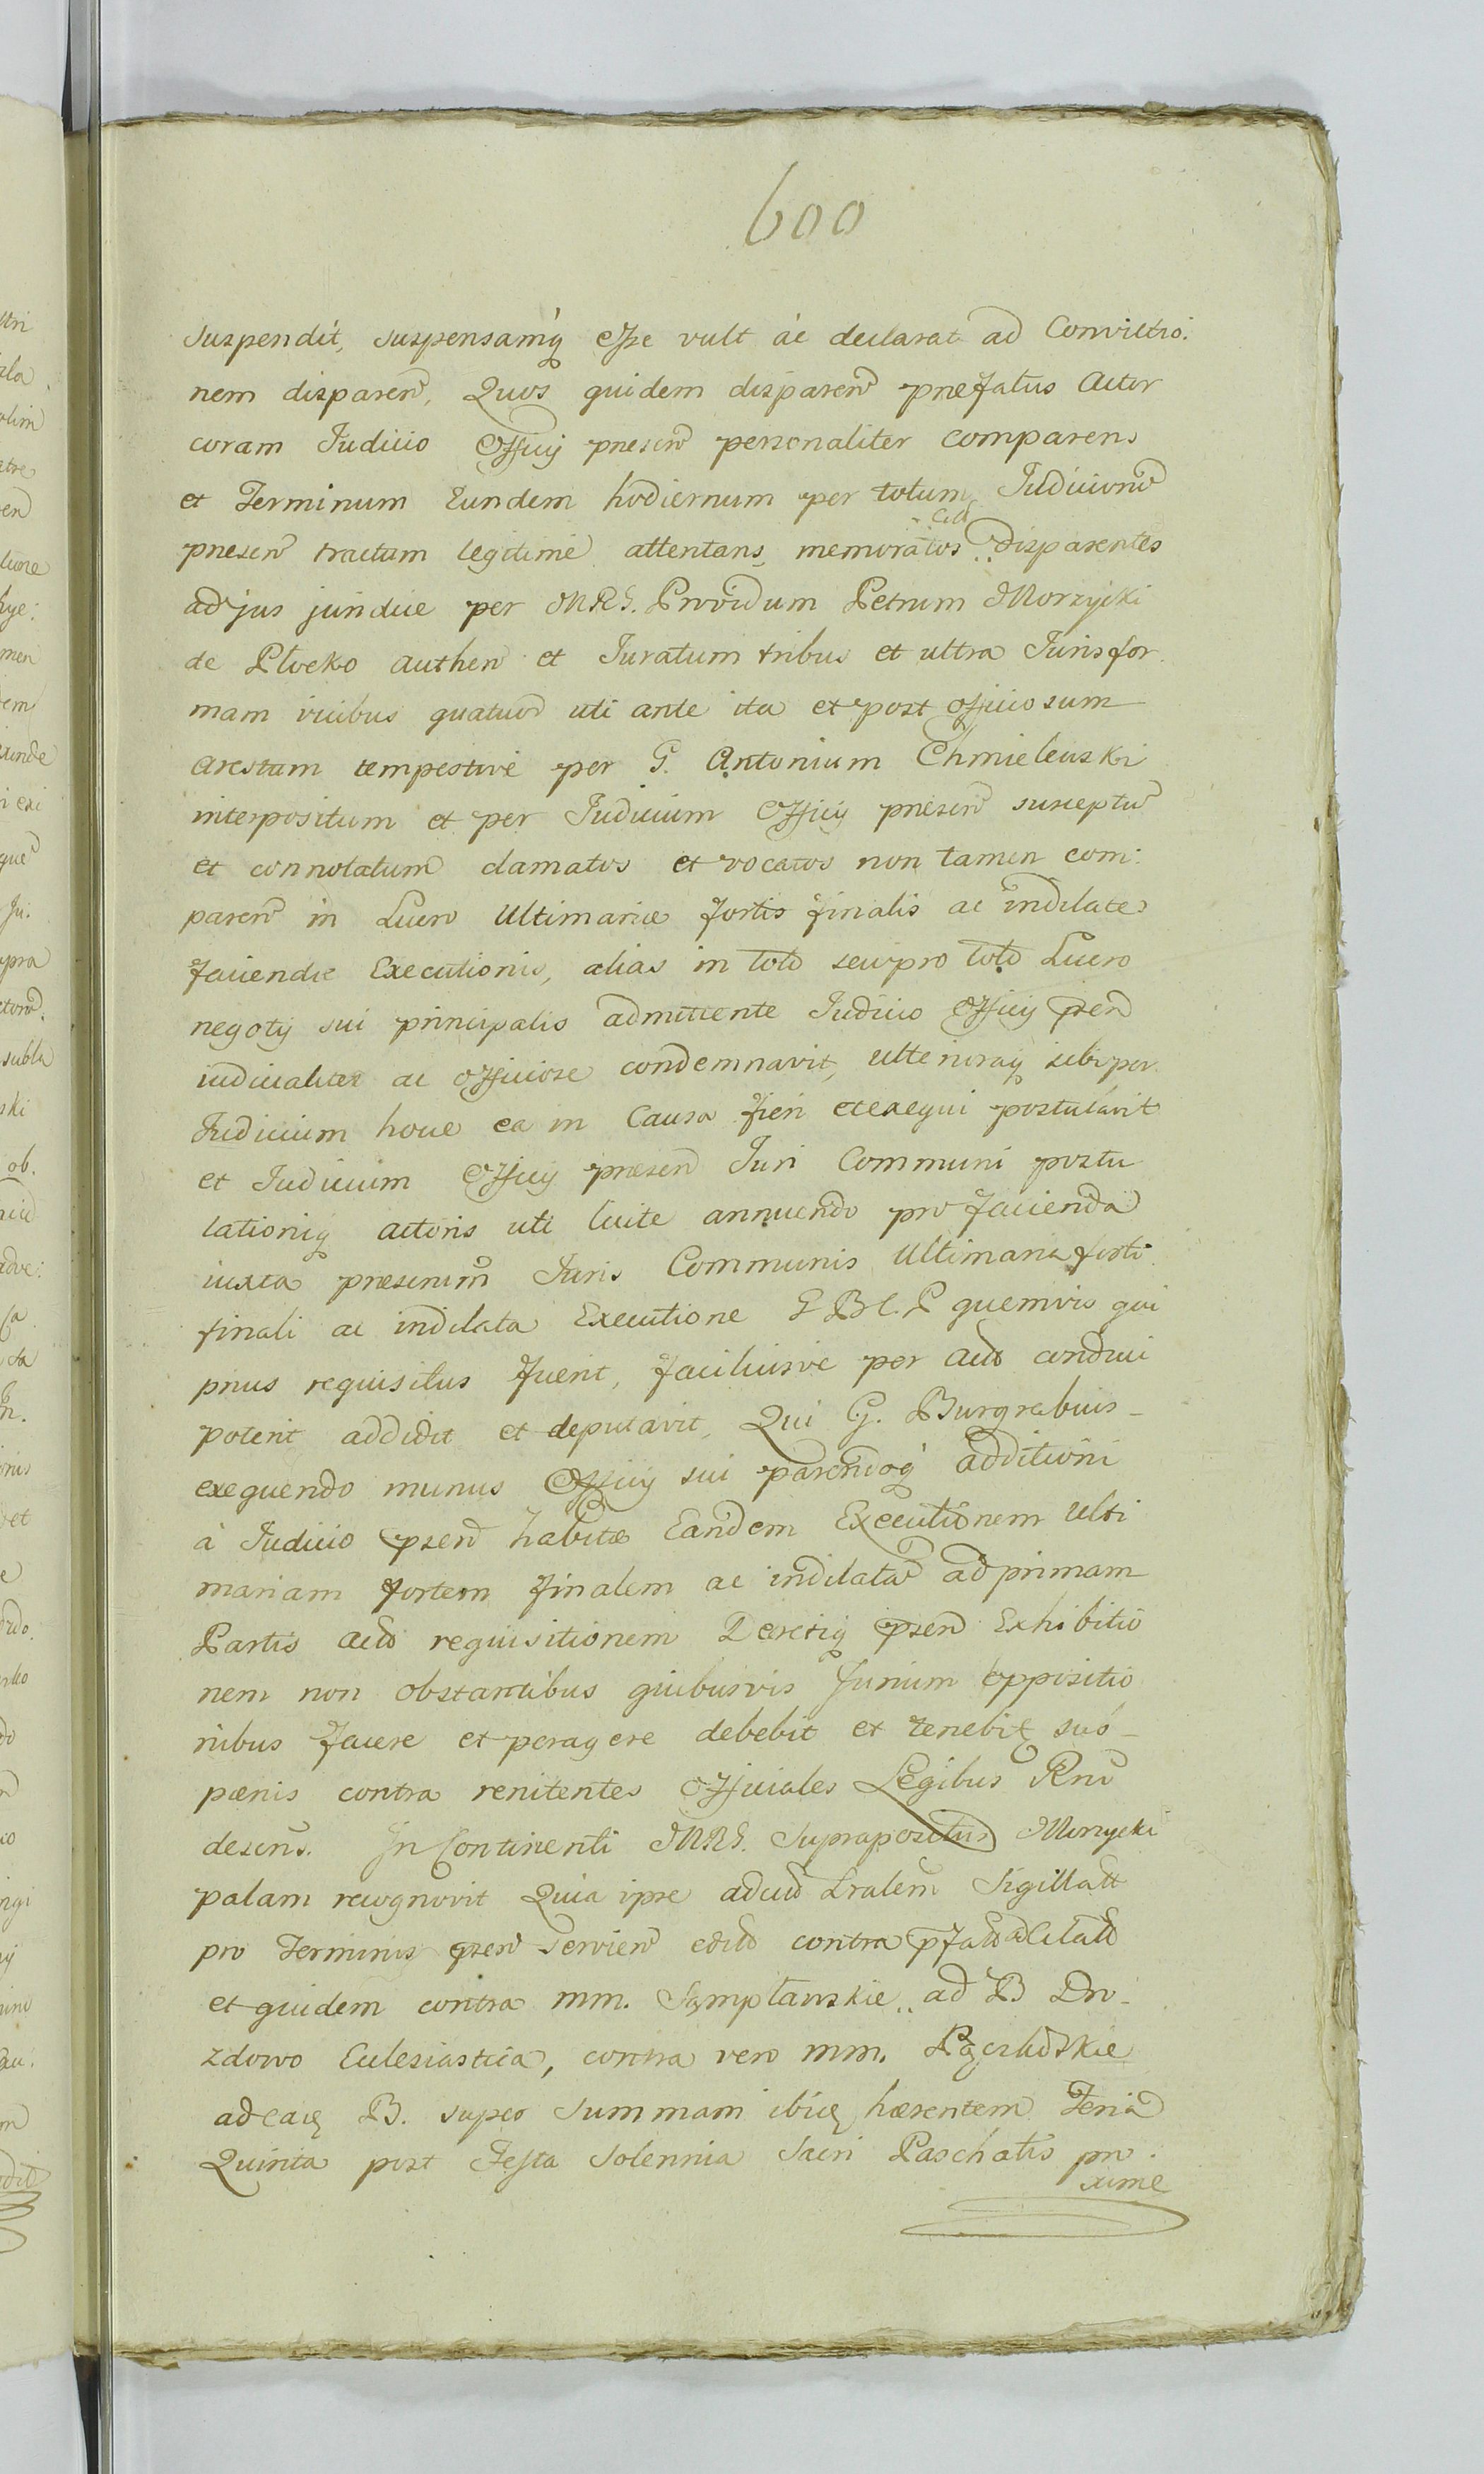 600
suspendit, suspensamq̃ esse vult ac declarat ad Convictio:
nem disparen̄, Quos quidem disparen̄ præfatus Actor
coram Judicio Officij præsen̄ personaliter comparens
et Terminum Eundem hodiernum per totum Judiciorū
præsen̄ tractum legitimè attentans, memoratos Citt disparentes
ad jus juridice per MRG. Providum Petrum Morzycki
de Płocko authen̄ et Juratum tribus et ultra Juris for
mam vicibus quatuor uti ante ita et post officiosum
arestum tempestivè per G. Antonium Chmielewski
interpositum et per Judicium Officij præsen̄ susceptū
et connotatum clamatos et vocatos non tamen com:
paren̄ in Lucro Ultimariæ fortis finalis ac indilatæ
faciendæ Executionis, alias in toto seu pro toto Lucro
negotij sui principalis admittente Judicio Officij præsen̄
iudicialiter ac officiose condemnavit, ulterioraq̃ sibi per
Judicium hocce ea in Causa fieri et exequi postulavit
et Judicium Officij præsen̄ Juri Communi postu
lationiq̃ actoris uti licite annuendo pro facienda
iuxta præscriptum̃ Juris Communis Ultimaria forti
finali ac indilata Executione G B C. P quemvis qui
prius requisitus fuerit, faciliusve per Act̃ conduci
poterit addidit et deputavit, Qui G. Burgrabius
exequendo munus Officij sui parendoq̃ additioni
à Judicio præsen̄ habitæ Eandem Executionem Ulti
mariam fortem finalem ac indilatā ad primam
Partis act̃ requisitionem Decretiq̃ præsen̄ Exhibitio
nem non obstantibus quibusvis Jurium oppositio
nibus facere et peragere debebit et tenebit̃ sub
pænis contra renitentes officiales Legibus Regni
descris. In Continenti MRG. Suprapositus Morzycki
palam recognovit Quia ipse adcitt̃ Lralem̃ Sigillatt
pro Terminis præsen̄ servien̄ edit̃ contra pfatt adcitatt
et quidem contra mm. Sąmpławskie ad B Dro
zdowo Ecclesiastica, contra vero mm. Pączkowskie
ad eaq̃ B. super Summam ibiq̃ hærentem Feria
Quinta post Festa Solennia Sacri Paschatis pro
xime